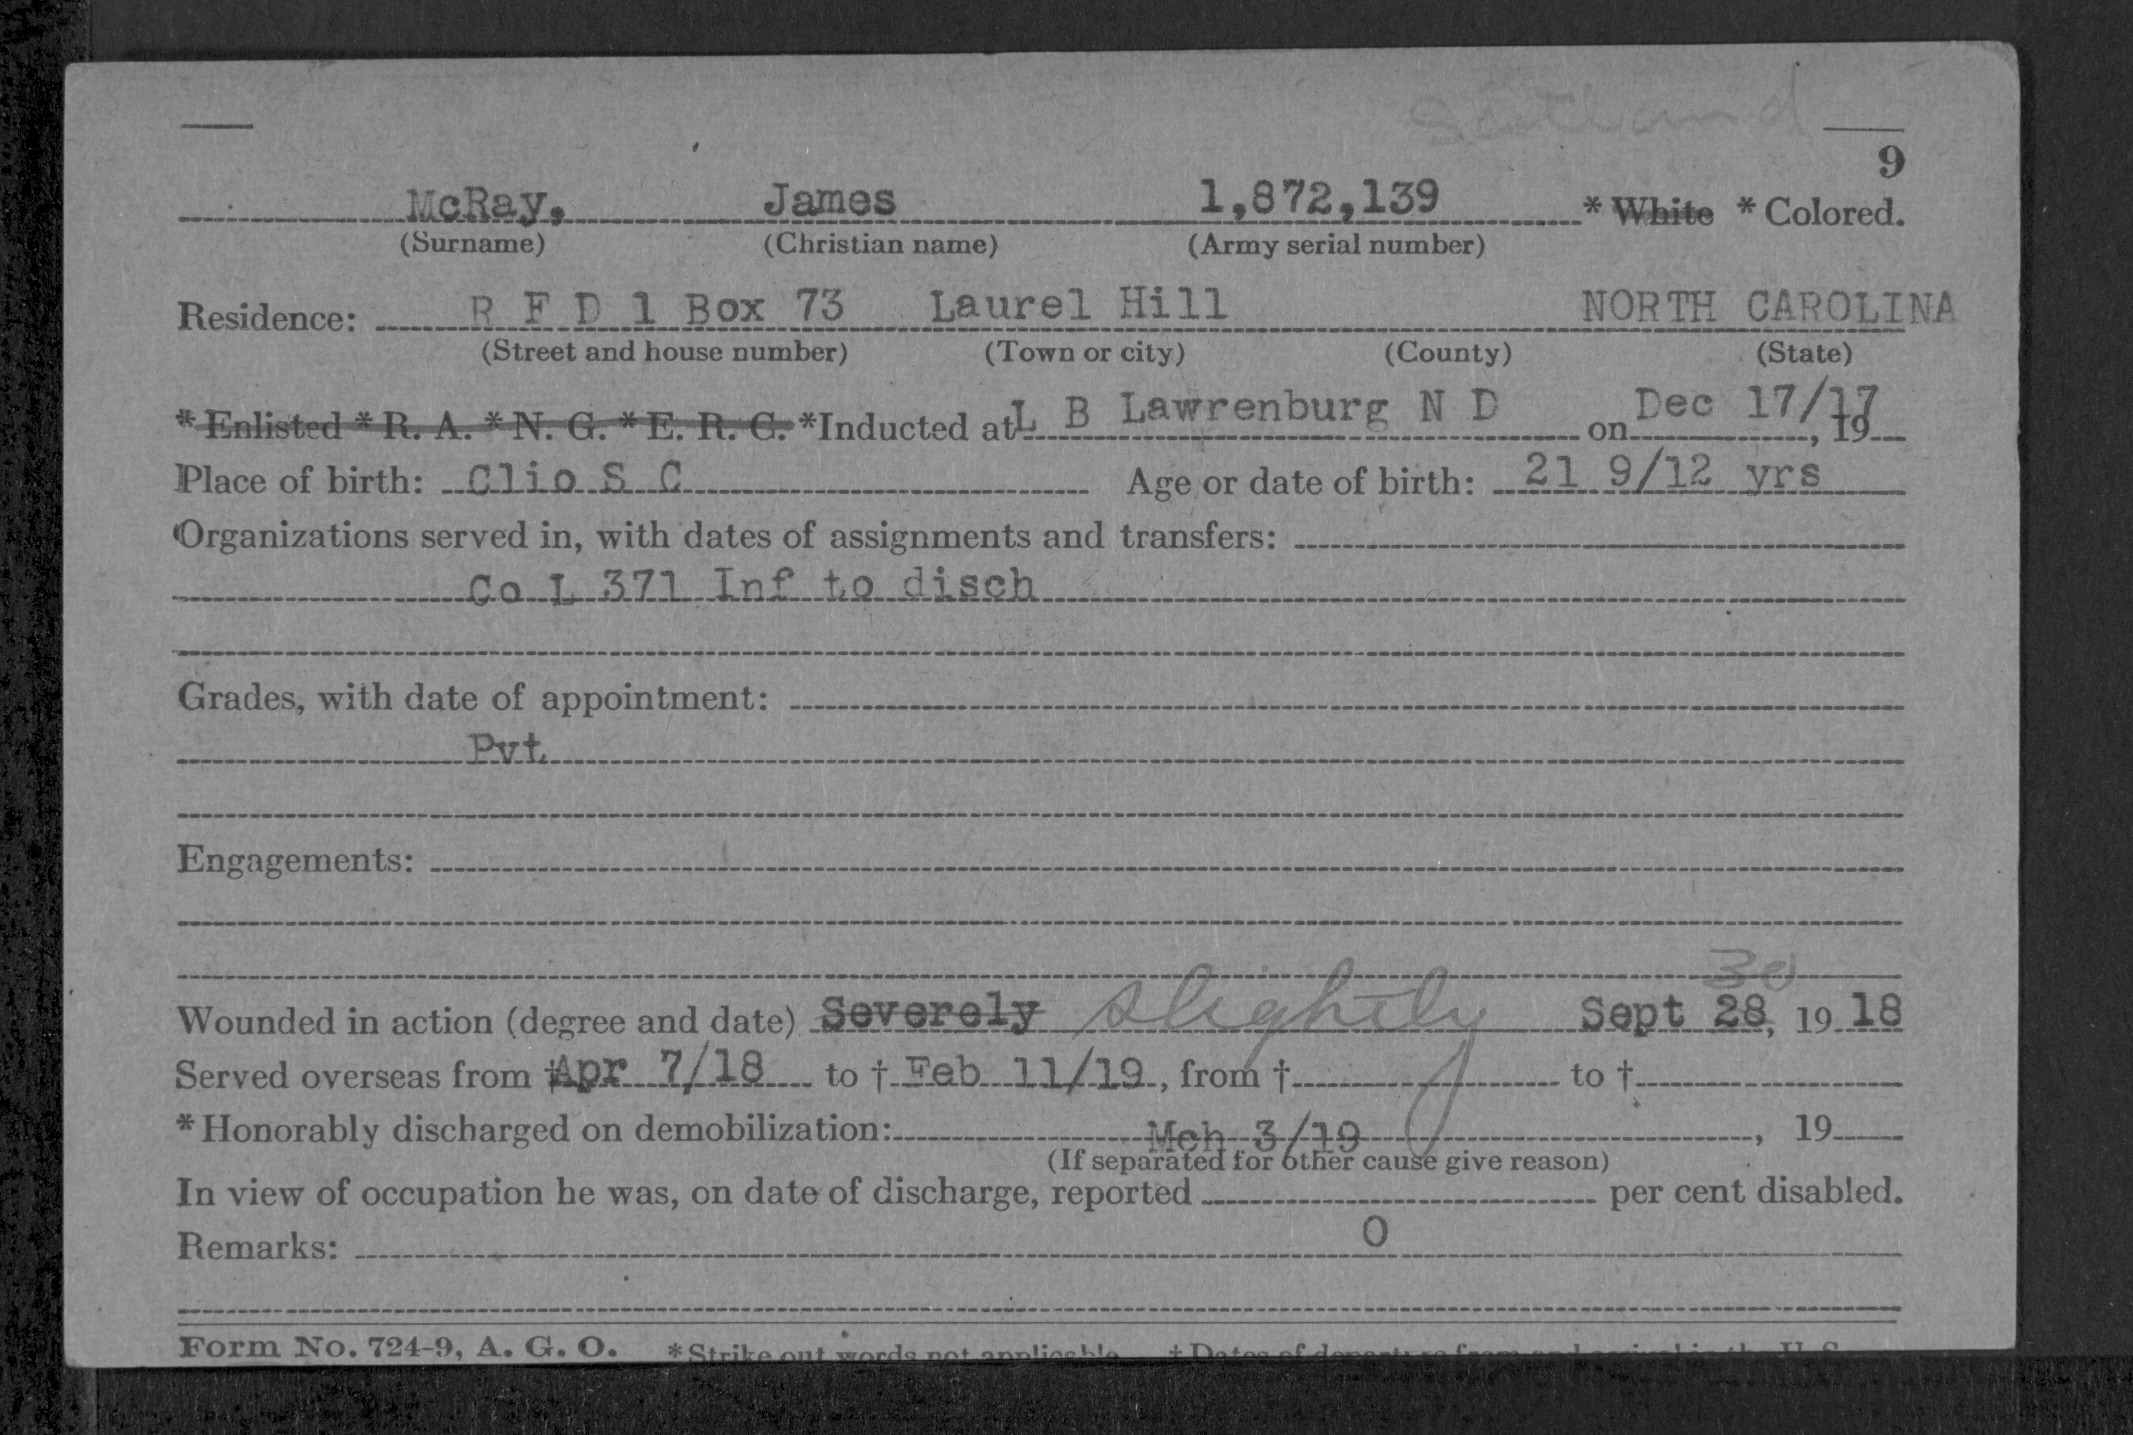 Scotland
9
McRay, James 1,872,139 * White * Colored.
(Surname) (Christian name) (Army serial number)
Residence: R F D 1 Box 73 Laurel Hill NORTH CAROLINA
(Street and house number) (Town or city) (County) (State)
* Enlisted * R. A. * N. G. * E. R. C. *Inducted at L B Lawrenburg N D on Dec 17/17, 19
Place of birth: Clio S C Age or date of birth: 21 9/12 yrs
Organizations served in, with dates of assignments and transfers:
Co L 371 Inf to disch
Grades, with date of appointment:
Pvt
Engagements:
30
Wounded in action (degree and date) Severely slightly Sept 28, 19 18
Served overseas from † Apr 7/18 to † Feb 11/19, from † to †
* Honorably discharged on demobilization: Mch 3/19, 19
(If separated for other cause give reason)
In view of occupation he was, on date of discharge, reported per cent disabled.
Remarks: 0
Form No. 724-9, A. G. O. * Strike out words not applicable. † Dates of departure from and arrival in the U. S.